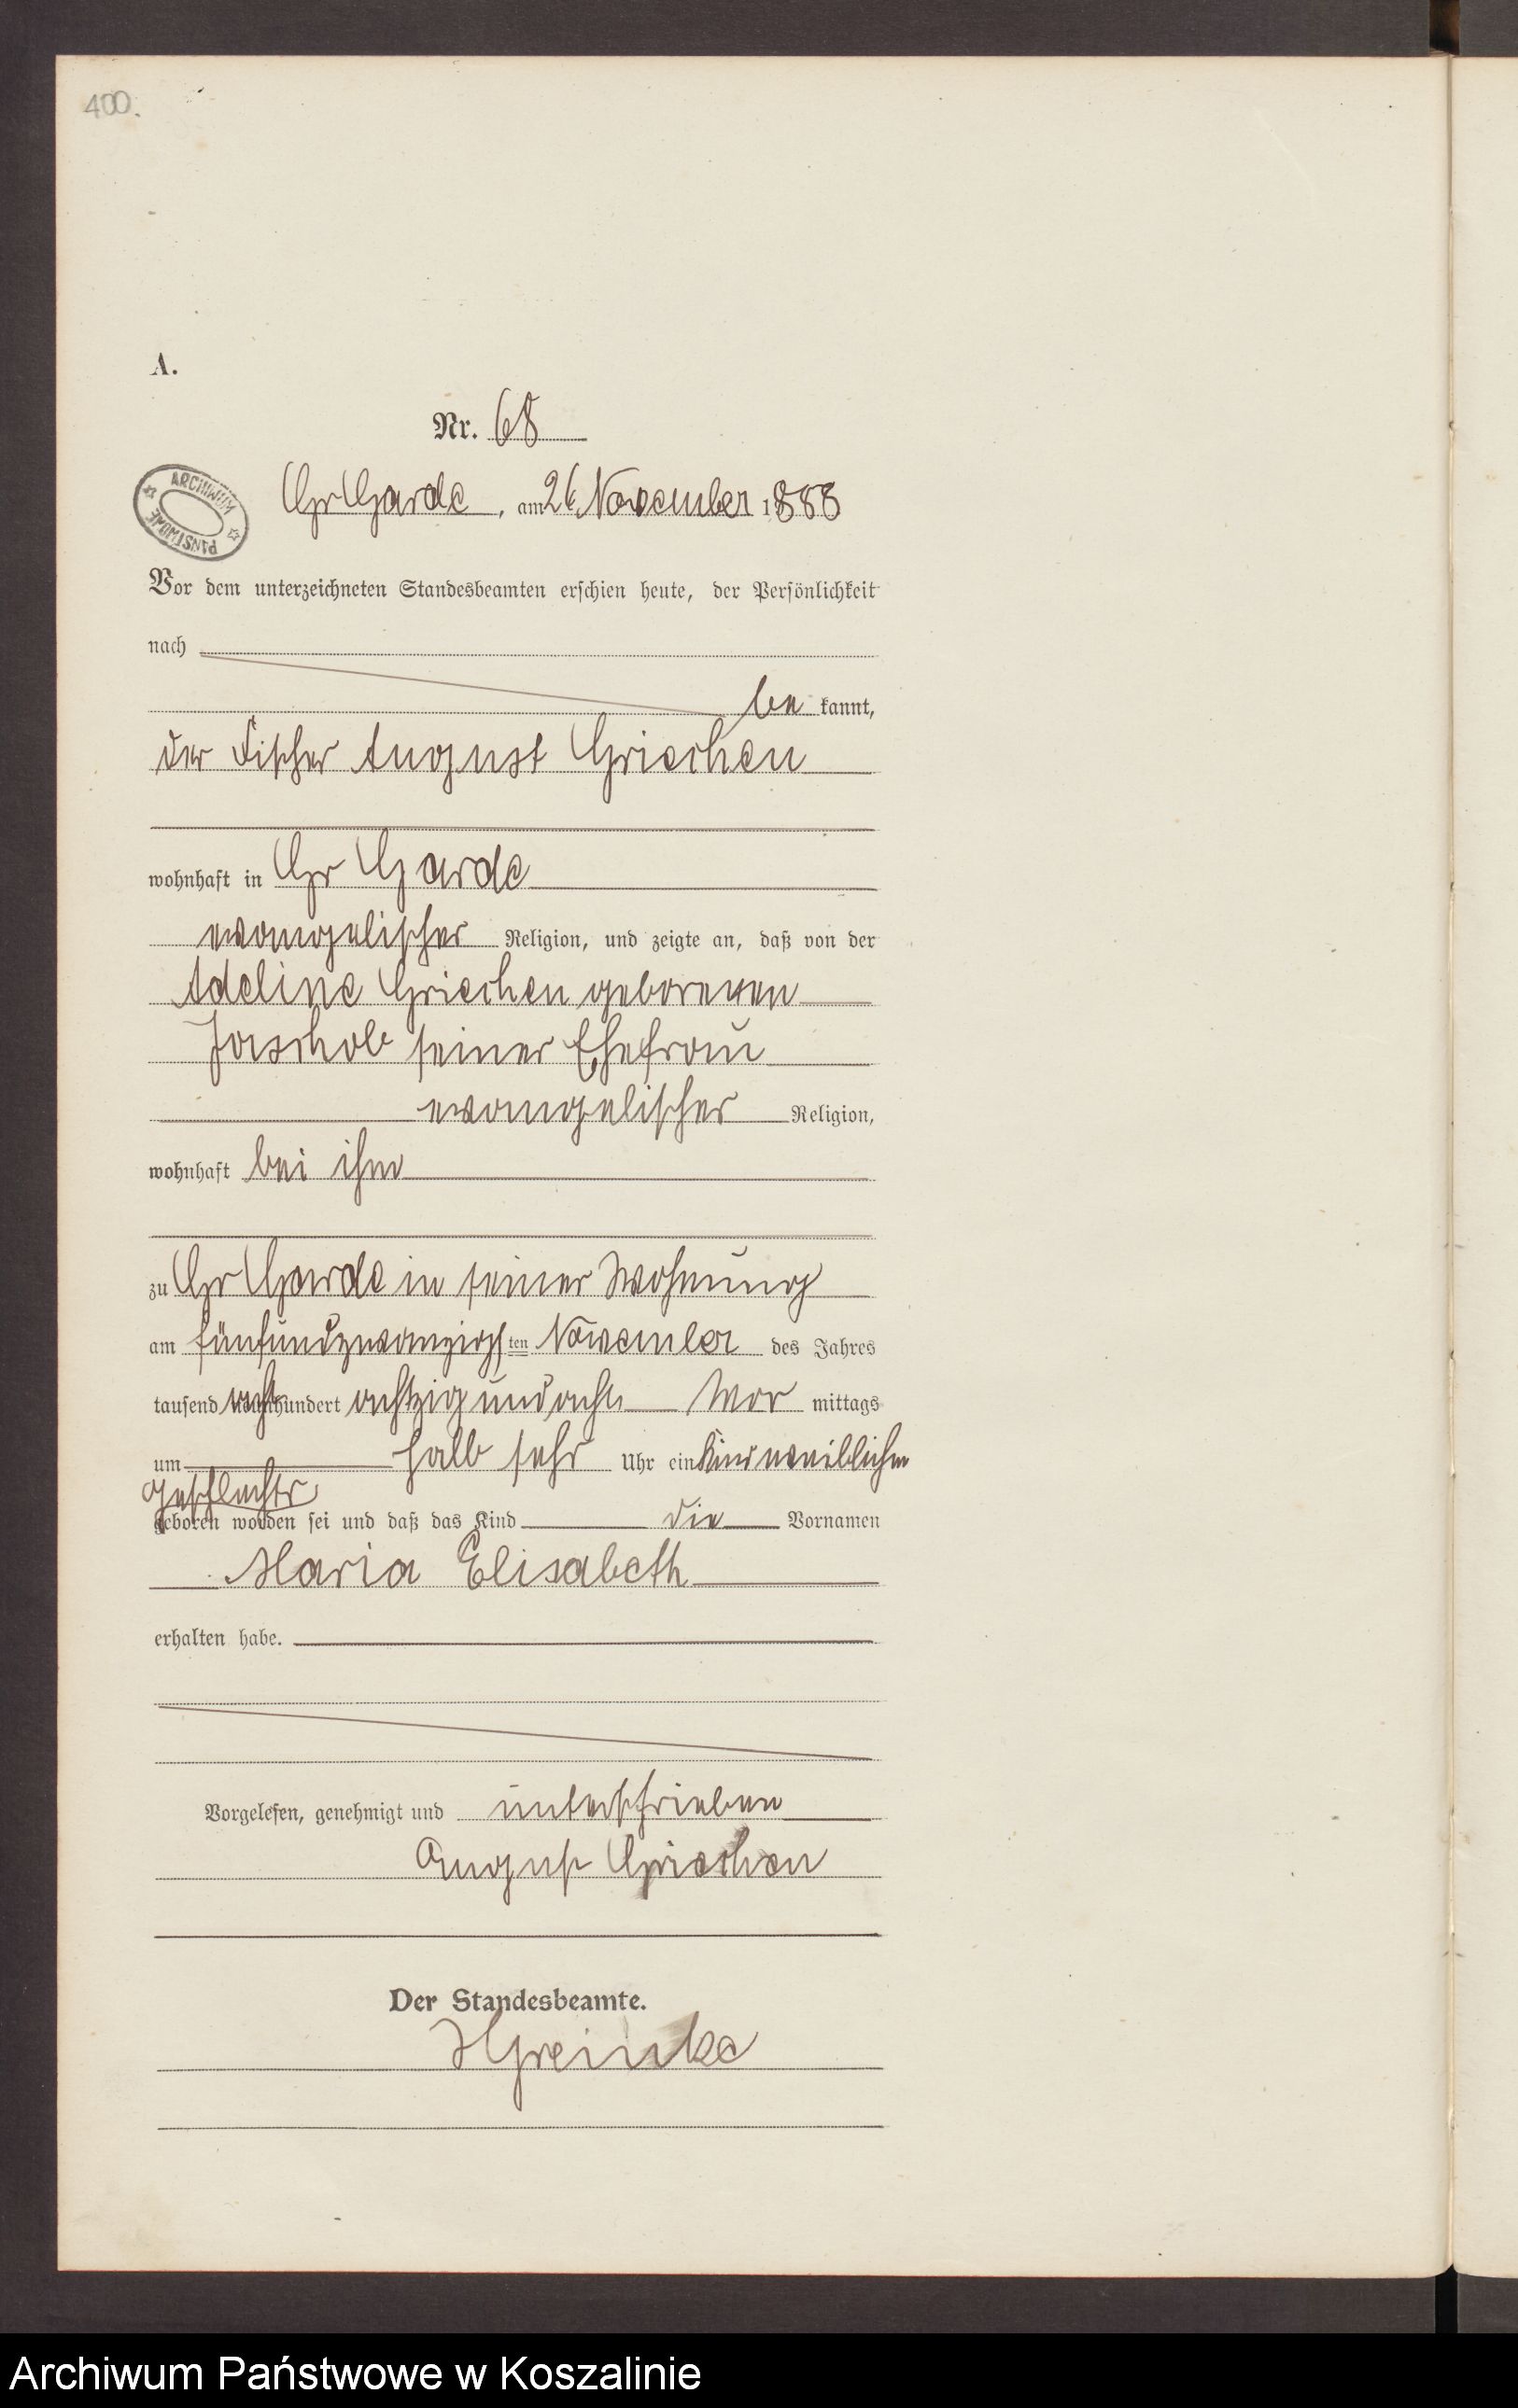 400.
A.
Nr. 68
ARCHIWUM PAŃSTWOWE
Gr Garde, am 26 November 1888
Vor dem unterzeichneten Standesbeamten erschien heute, der Persönlichkeit
nach
be kannt,
der Fischer August Griechen
wohnhaft in Gr Garde
evangelischer Religion, und zeigte an, daß von der
Adeline Griechen geborenen
Jaschob seiner Ehefrau
evangelischer Religion,
wohnhaft bei ihm
zu Gr Garde in seiner Wohnung
am fünfundzwanzigsten November des Jahres
tausend acht hundert achtzig und acht Vor mittags
um halb sechs Uhr ein Kind weiblichen
Geschlechts
geboren worden sei und daß das Kind die Vornamen
Maria Elisabeth
erhalten habe.
Vorgelesen, genehmigt und unterschrieben
August Griechen
Der Standesbeamte.
HGreinke
Archiwum Państwowe w Koszalinie